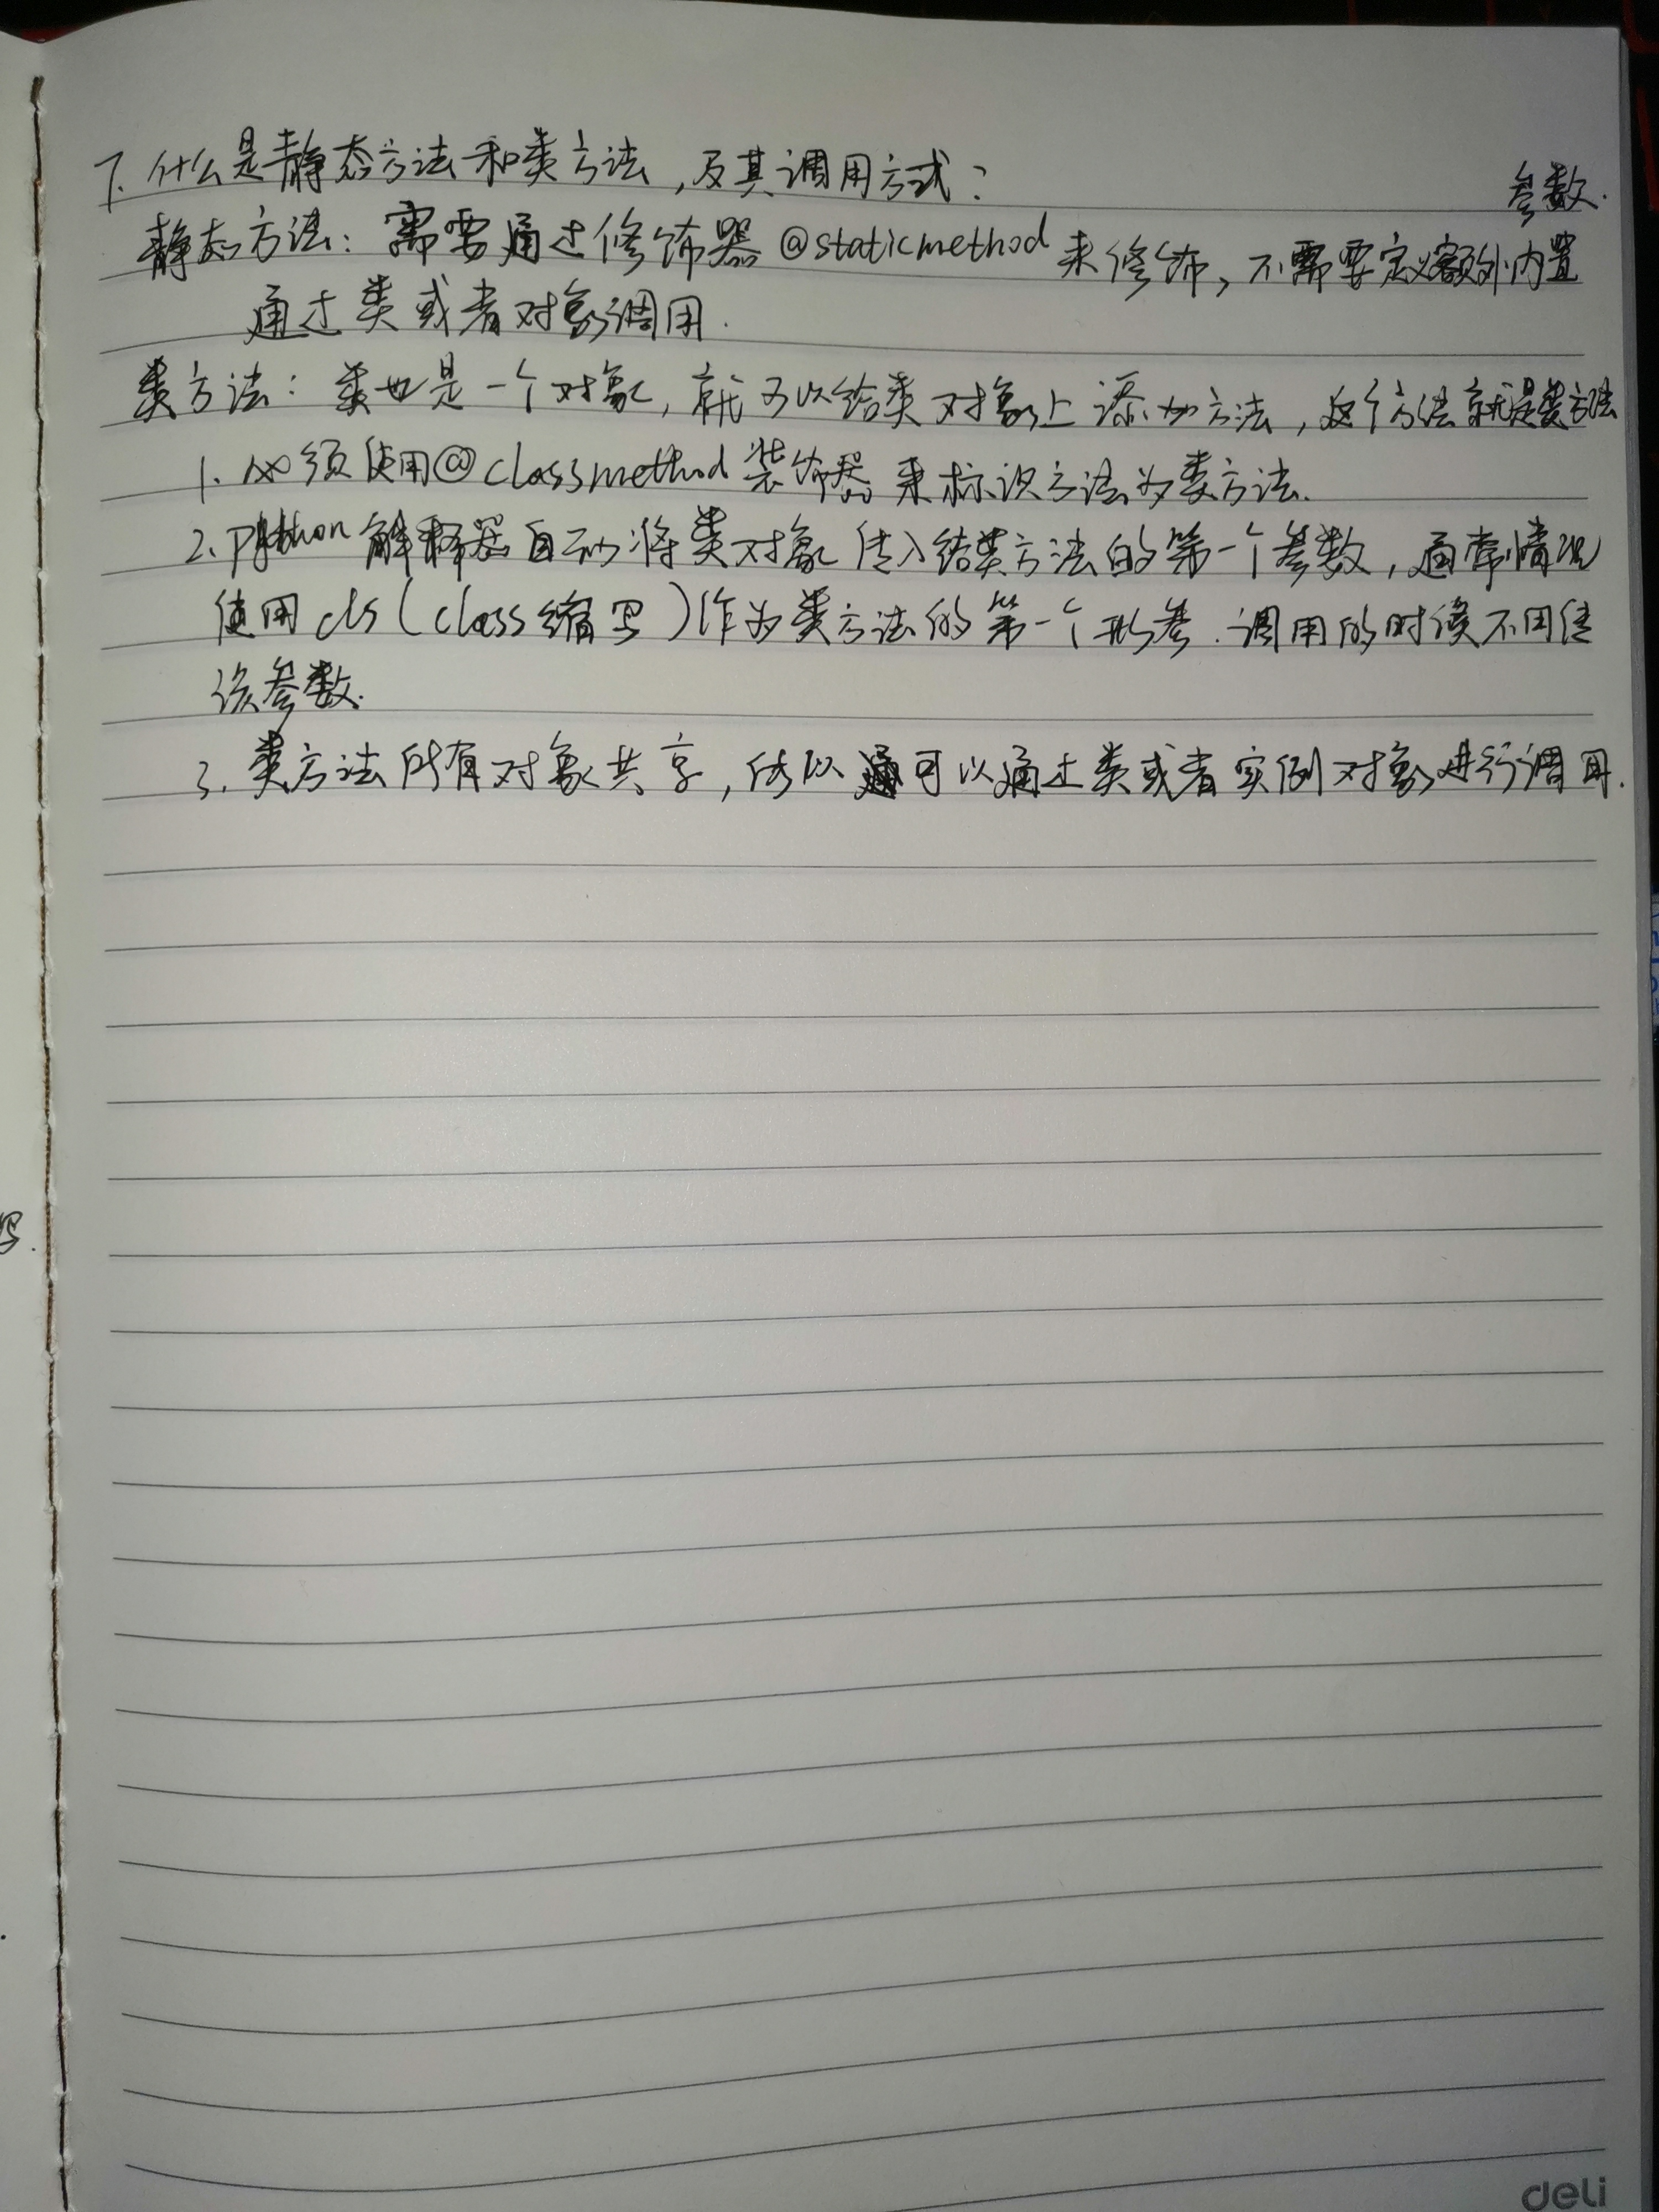 7. 什么是静态方法和类方法,及其调用方式?
静态方法: 需要通过修饰器 @staticmethod 来修饰, 不需要定义额外内置
参数.
通过类或者对象调用.
类方法: 类也是一个对象, 就可以给类对象上添加方法, 这个方法就是类方法
1. 必须使用@classmethod 装饰器 来标识方法为类方法.
2. python 解释器自动将类对象传入给类方法的第一个参数, 通常情况
使用 cls (class 缩写) 作为类方法的第一个形参. 调用的时候不用传
该参数.
3. 类方法所有对象共享, 所以可以通过类或者实例对象进行调用.
写.
deli